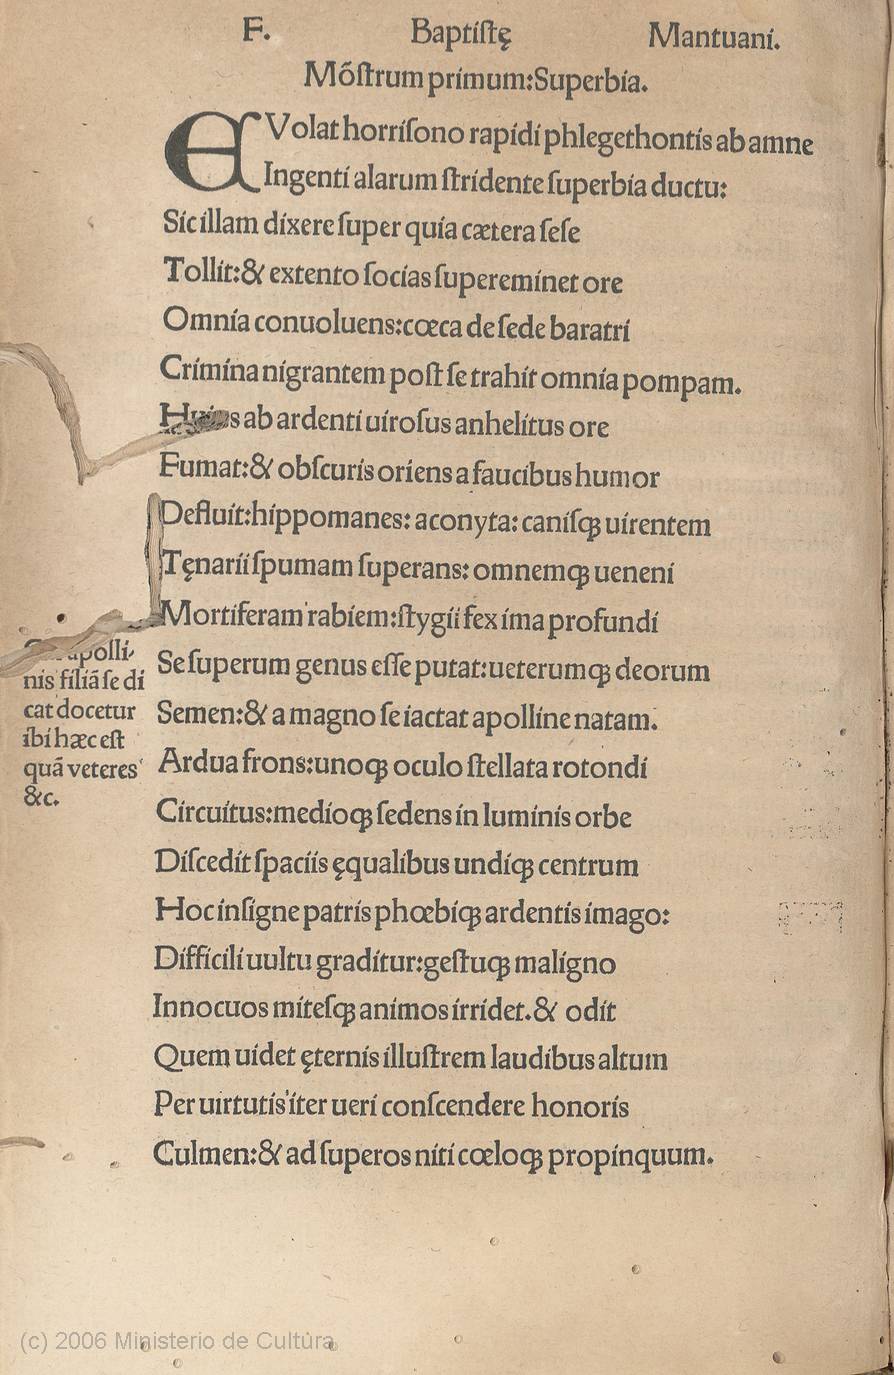 F. Baptiſtę Mantuani.
Mõſtrum primum:Superbia.
EVolat horriſono rapidi phlegethontis ab amne
Ingenti alarum ſtridente ſuperbia ductu:
Sic illam dixere ſuper quia cætera ſeſe
Tollit:& extento ſocias ſupereminet ore
Omnia conuoluens:cœca de ſede baratri
Crimina nigrantem poſt ſe trahit omnia pompam.
Huius ab ardenti uiroſus anhelitus ore
Fumat:& obſcuris oriens a faucibus humor
Defluit:hippomanes: aconyta: caniſꝙ uirentem
Tęnarii ſpumam ſuperans: omnemꝙ ueneni
Mortiferam rabiem:ſtygii fex ima profundi
Se ſuperum genus eſſe putat:ueterumꝙ deorum
Semen:& a magno ſe iactat apolline natam.
Ardua frons:unoꝙ oculo ſtellata rotondi
Circuitus:medioꝙ ſedens in luminis orbe
Diſcedit ſpaciis ęqualibus undiꝙ centrum
Hoc inſigne patris phœbiꝙ ardentis imago:
Difficili uultu graditur:geſtuꝙ maligno
Innocuos miteſꝙ animos irridet.& odit
Quem uidet ęternis illuſtrem laudibus altum
Per uirtutis iter ueri conſcendere honoris
Culmen:& ad ſuperos niti cœloꝙ propinquum.
apolli-
nis filiã ſe di
cat docetur
ibi hæc eſt
quã veteres
&c.
(c) 2006 Ministerio de Cultura